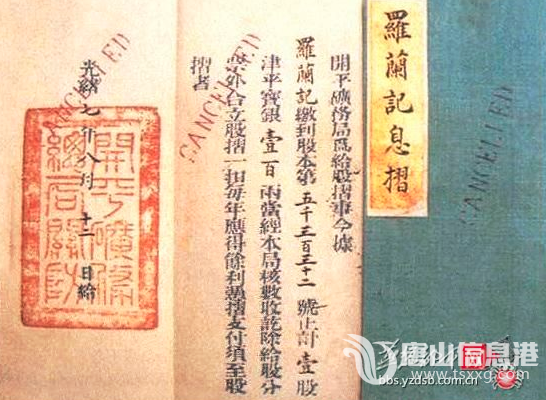 羅蘭記息摺
CANCELLED
開平礦務局爲給股摺事今據
羅蘭記繳到股本第五千三百三十二號止計壹股
津平寶銀壹百兩當經本局核數收訖除給股分
票外合立股摺一扣每年應得餘利憑摺支付須至股
摺者
CANCELLED
光緒七年八月十二日給
CANCELLED
開平礦務
總局關防
唐山信息港
www.tsxxg.com
bbs.yzdsb.com.cn